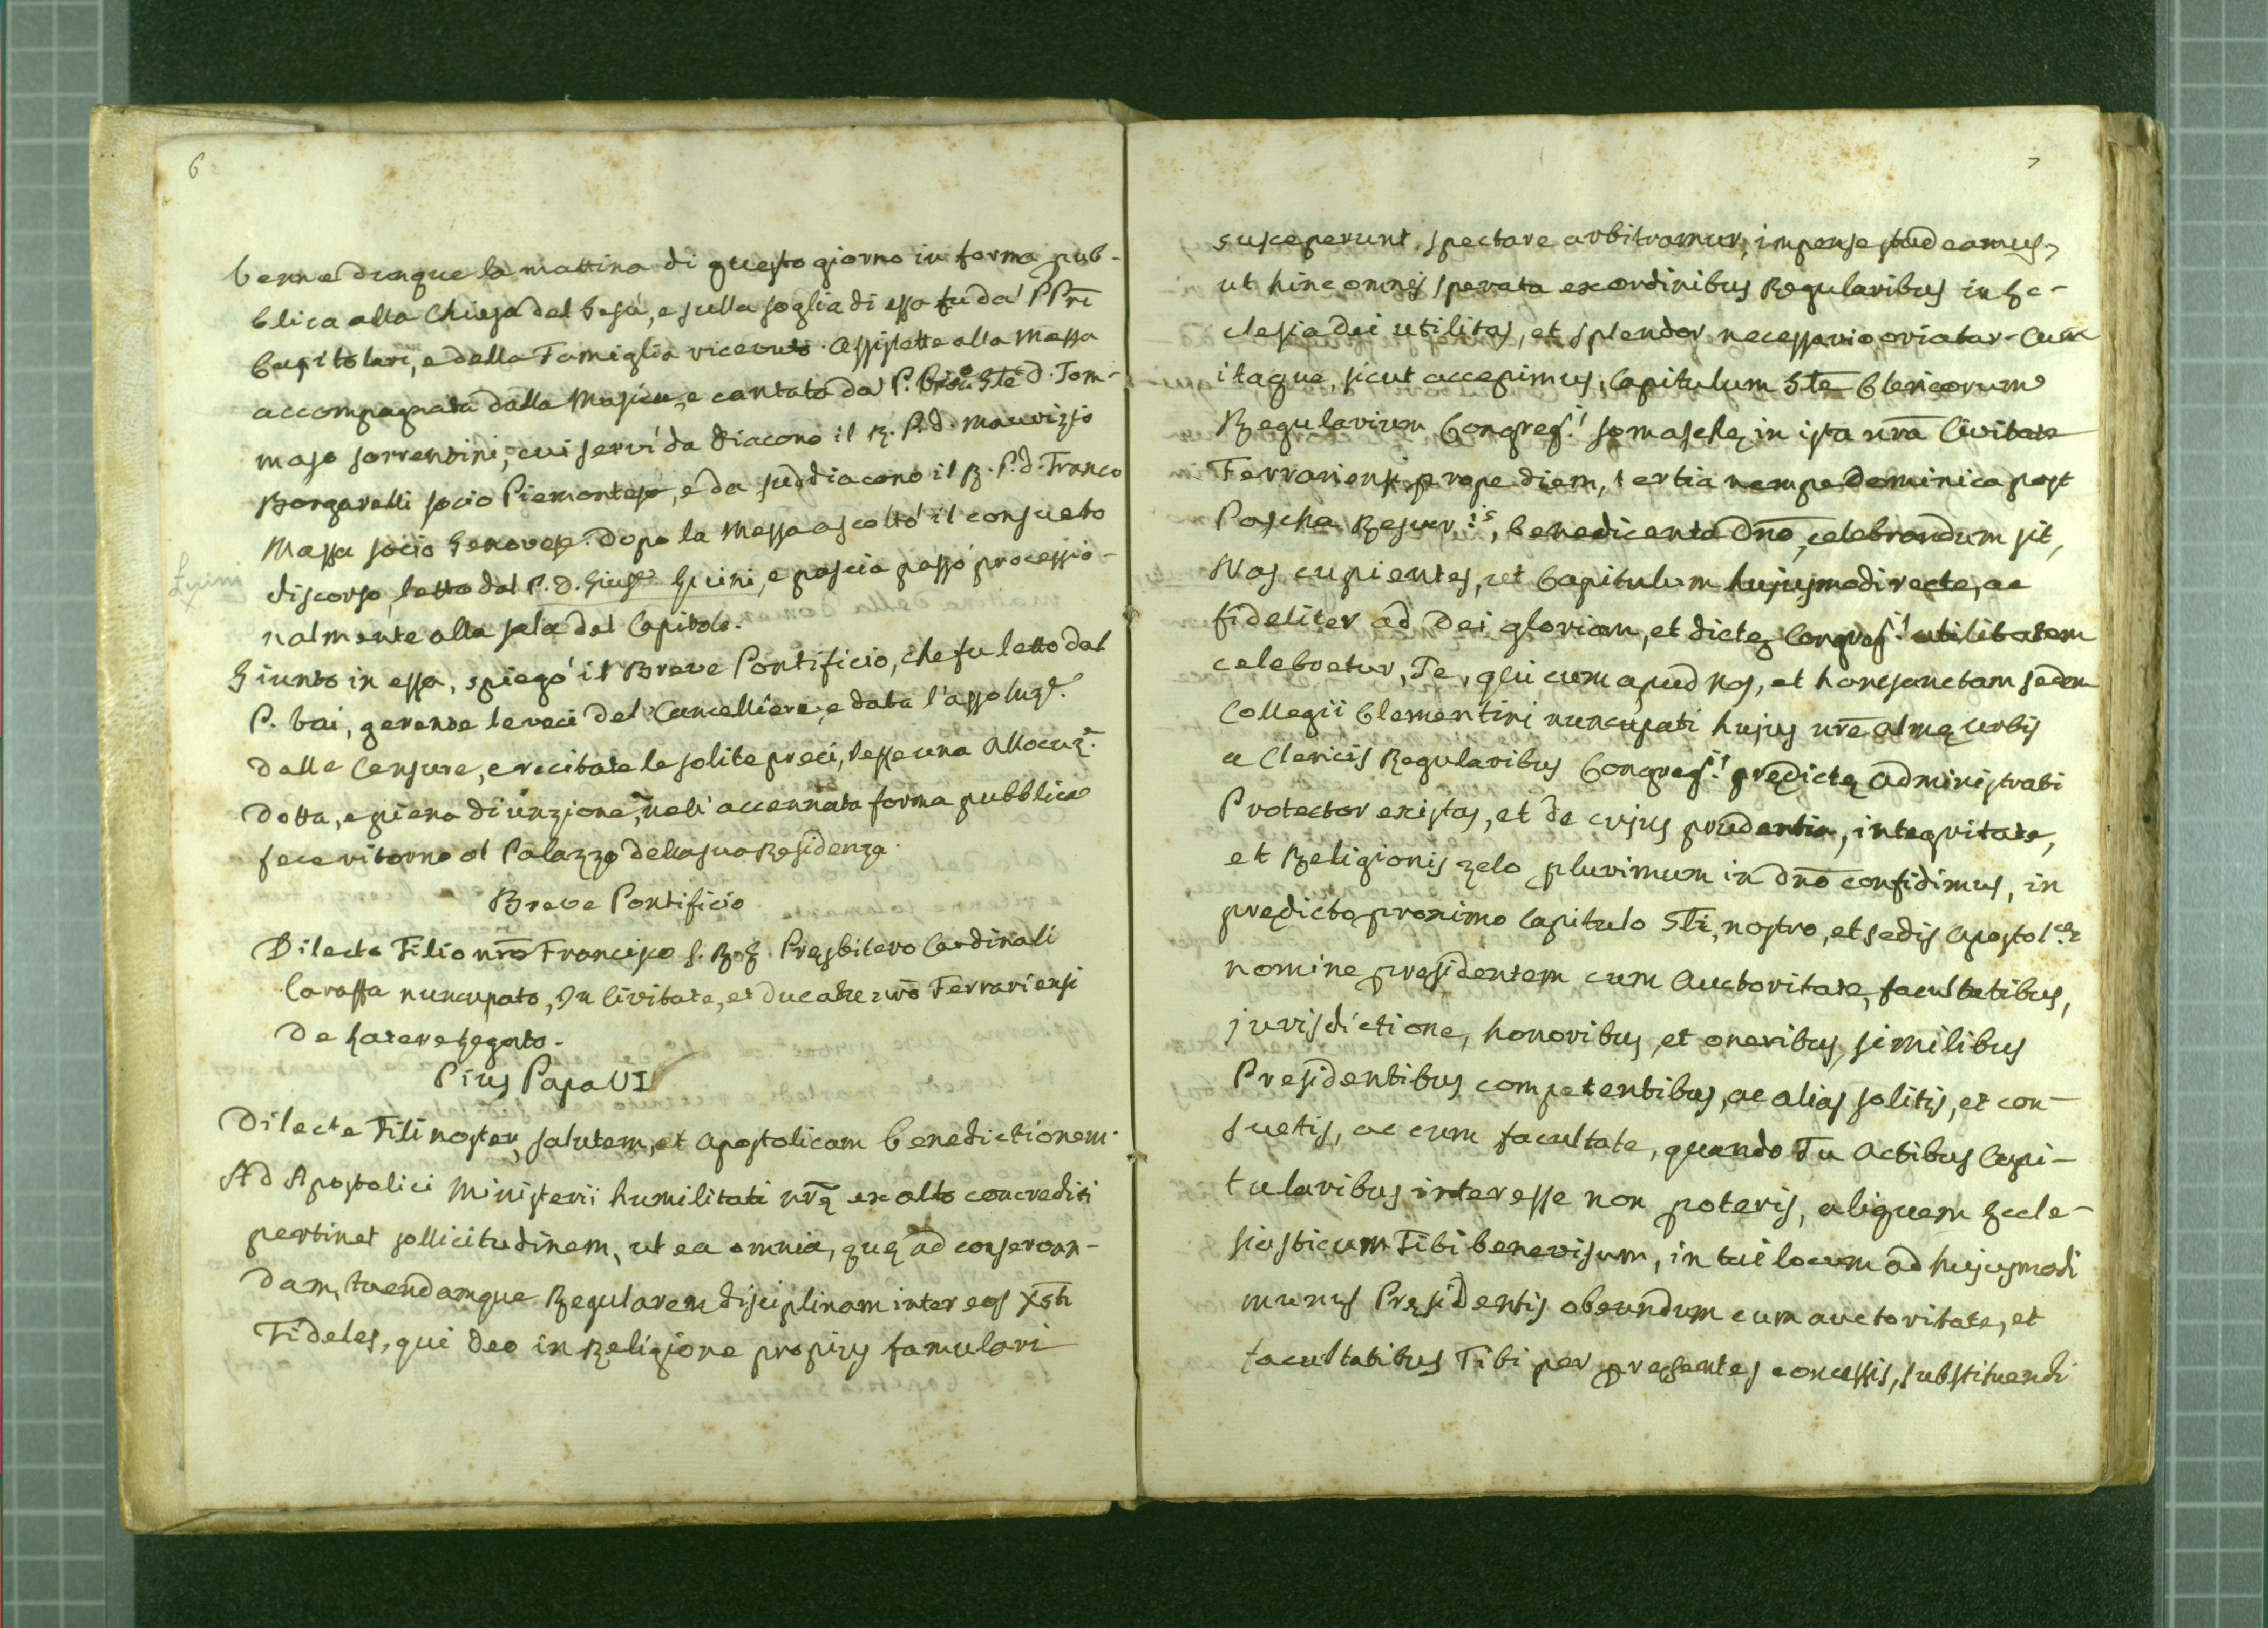 6
venne dunque la mattina di questo giorno in forma pub-
blica alla Chiesa del Gesù, e sulla soglia di essa fu da' PPri
Capitolari, e della Famiglia ricevuto. Assistette alla Messa
accompagnata dalla Musica, e cantata dal P. Gñle D. Tom-
maso Sorrentini, cui servì da Diacono il R. P. D. Maurizio
Borgarelli socio Piemontese, e da suddiacono il R. P. D. Franco
Massa socio Genovese. Dopo la Messa ascoltò il consueto
discorso, letto dal P. D. Giuse Guini, e poscia passò processio-
nalmente alla sala del Capitolo.
Giunto in essa, spiegò il Breve Pontificio, che fu letto dal
P. Vai, gerente le veci del Cancelliere, e data l'assoluze.
dalle Censure, e recitate le solite preci, lesse una Allocuze.
dotta, e piena di unzione, nell' accennata forma pubblica
fece ritorno al Palazzo della sua Residenza.
Breve Pontificio
Dilecto Filio nrõ Francisco S. R. E. Pręsbitero Cardinali
Caraffa nuncupato, In Civitate, et Ducatu nrõ Ferrariensi
De Latere Legato.
Pius Papa VI
Dilecte Fili noster, salutem, et Apostolicam benedictionem.
Ad Apostolici Ministerii humilitati nrę ex alto concrediti
pertinet sollicitudinem, ut ea omnia, quę ad conservan-
dam, tuendamque Regularem disciplinam inter eos Xsti
Fideles, qui Deo in Religione propius famulari
7
susceperunt, spectare arbitramur, impense studeamus,
ut hinc omnis sperata ex ordinibus Regularibus in Ec-
clesia Dei utilitas, et splendor necessario oriatur. Cum
itaque, sicut accepimus, Capitulum Gñle Clericorum
Regularium Congregis. Somaschę in ista nrã Civitate
Ferrariensi prope diem, tertia nempe Dominica post
Pascha Resurr:is, benedicente Dnõ, celebrandum sit,
Nos cupientes, ut Capitulum hujusmodi recte, ac
fideliter ad Dei gloriam, et dictę Congregis. utilitatem
celebretur, Te, qui cum apud nos, et hanc sanctam sedem
Collegii Clementini nuncupati hujus nrę almę urbis
a Clericis Regularibus Congregis. prędictę administrati
Protector existas, et de cujus prudentia, integritate,
et Religionis zelo plurimum in Dnõ confidimus, in
prędicto proximo Capitulo Gñli, nostro, et sedis Apostolcę
nomine pręsidentem cum Auctoritate, facultatibus,
jurisdictione, honoribus, et oneribus, similibus
Presidentibus competentibus, ac alias solitis, et con-
suetis, ac cum facultate, quando Tu Actibus Capi-
tularibus interesse non poteris, aliquem Eccle-
siasticum Tibi benevisum, in tui locum ad hujusmodi
munus Pręsidentis obeundum cum auctoritate, et
facultatibus Tibi per pręsentes concessis, substituendi